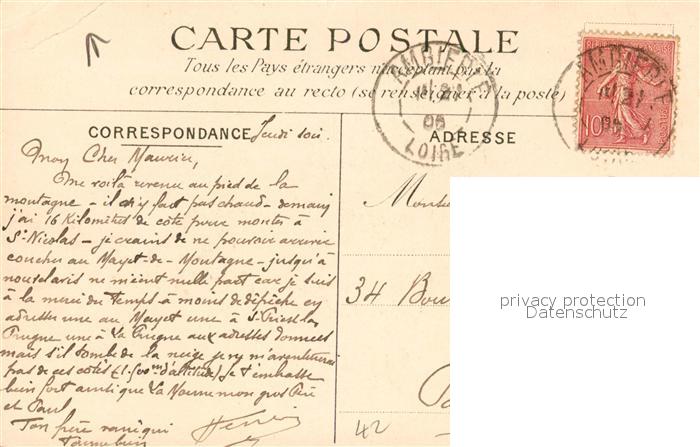 CARTE POSTALE
Tous les Pays étrangers n'acceptent pas la
correspondance au recto (se renseigner à la poste)
AMBIERLE
21
06
LOIRE
AMBIERLE
21
06
10
CORRESPONDANCE
Jeudi soir.
ADRESSE
Mon Cher Maurice,
Me voilà revenu au pied de la
montagne - il n'y fait pas chaud - demain
j'ai 16 Kilomètres de côte pour monter à
St Nicolas - je crains de ne pouvoir arriver
coucher au Mayet-de-Montagne - jusqu'à
nouvel avis ne m'écrit nulle part car je suis
à la merci du temps à moins de dépêche en
adresser une au Mayet une à St Priest la
Prugne une à La Prugne aux adresses données
mais s'il tombe de la neige je n'y m'aventurerai
pas de ces côtés (1.100m d'altitude) Je t'embrasse
bien fort ainsi que La Noune mon gros Pépé
et Paul
Ton frère
34 Bou
42
privacy protection
Datenschutz